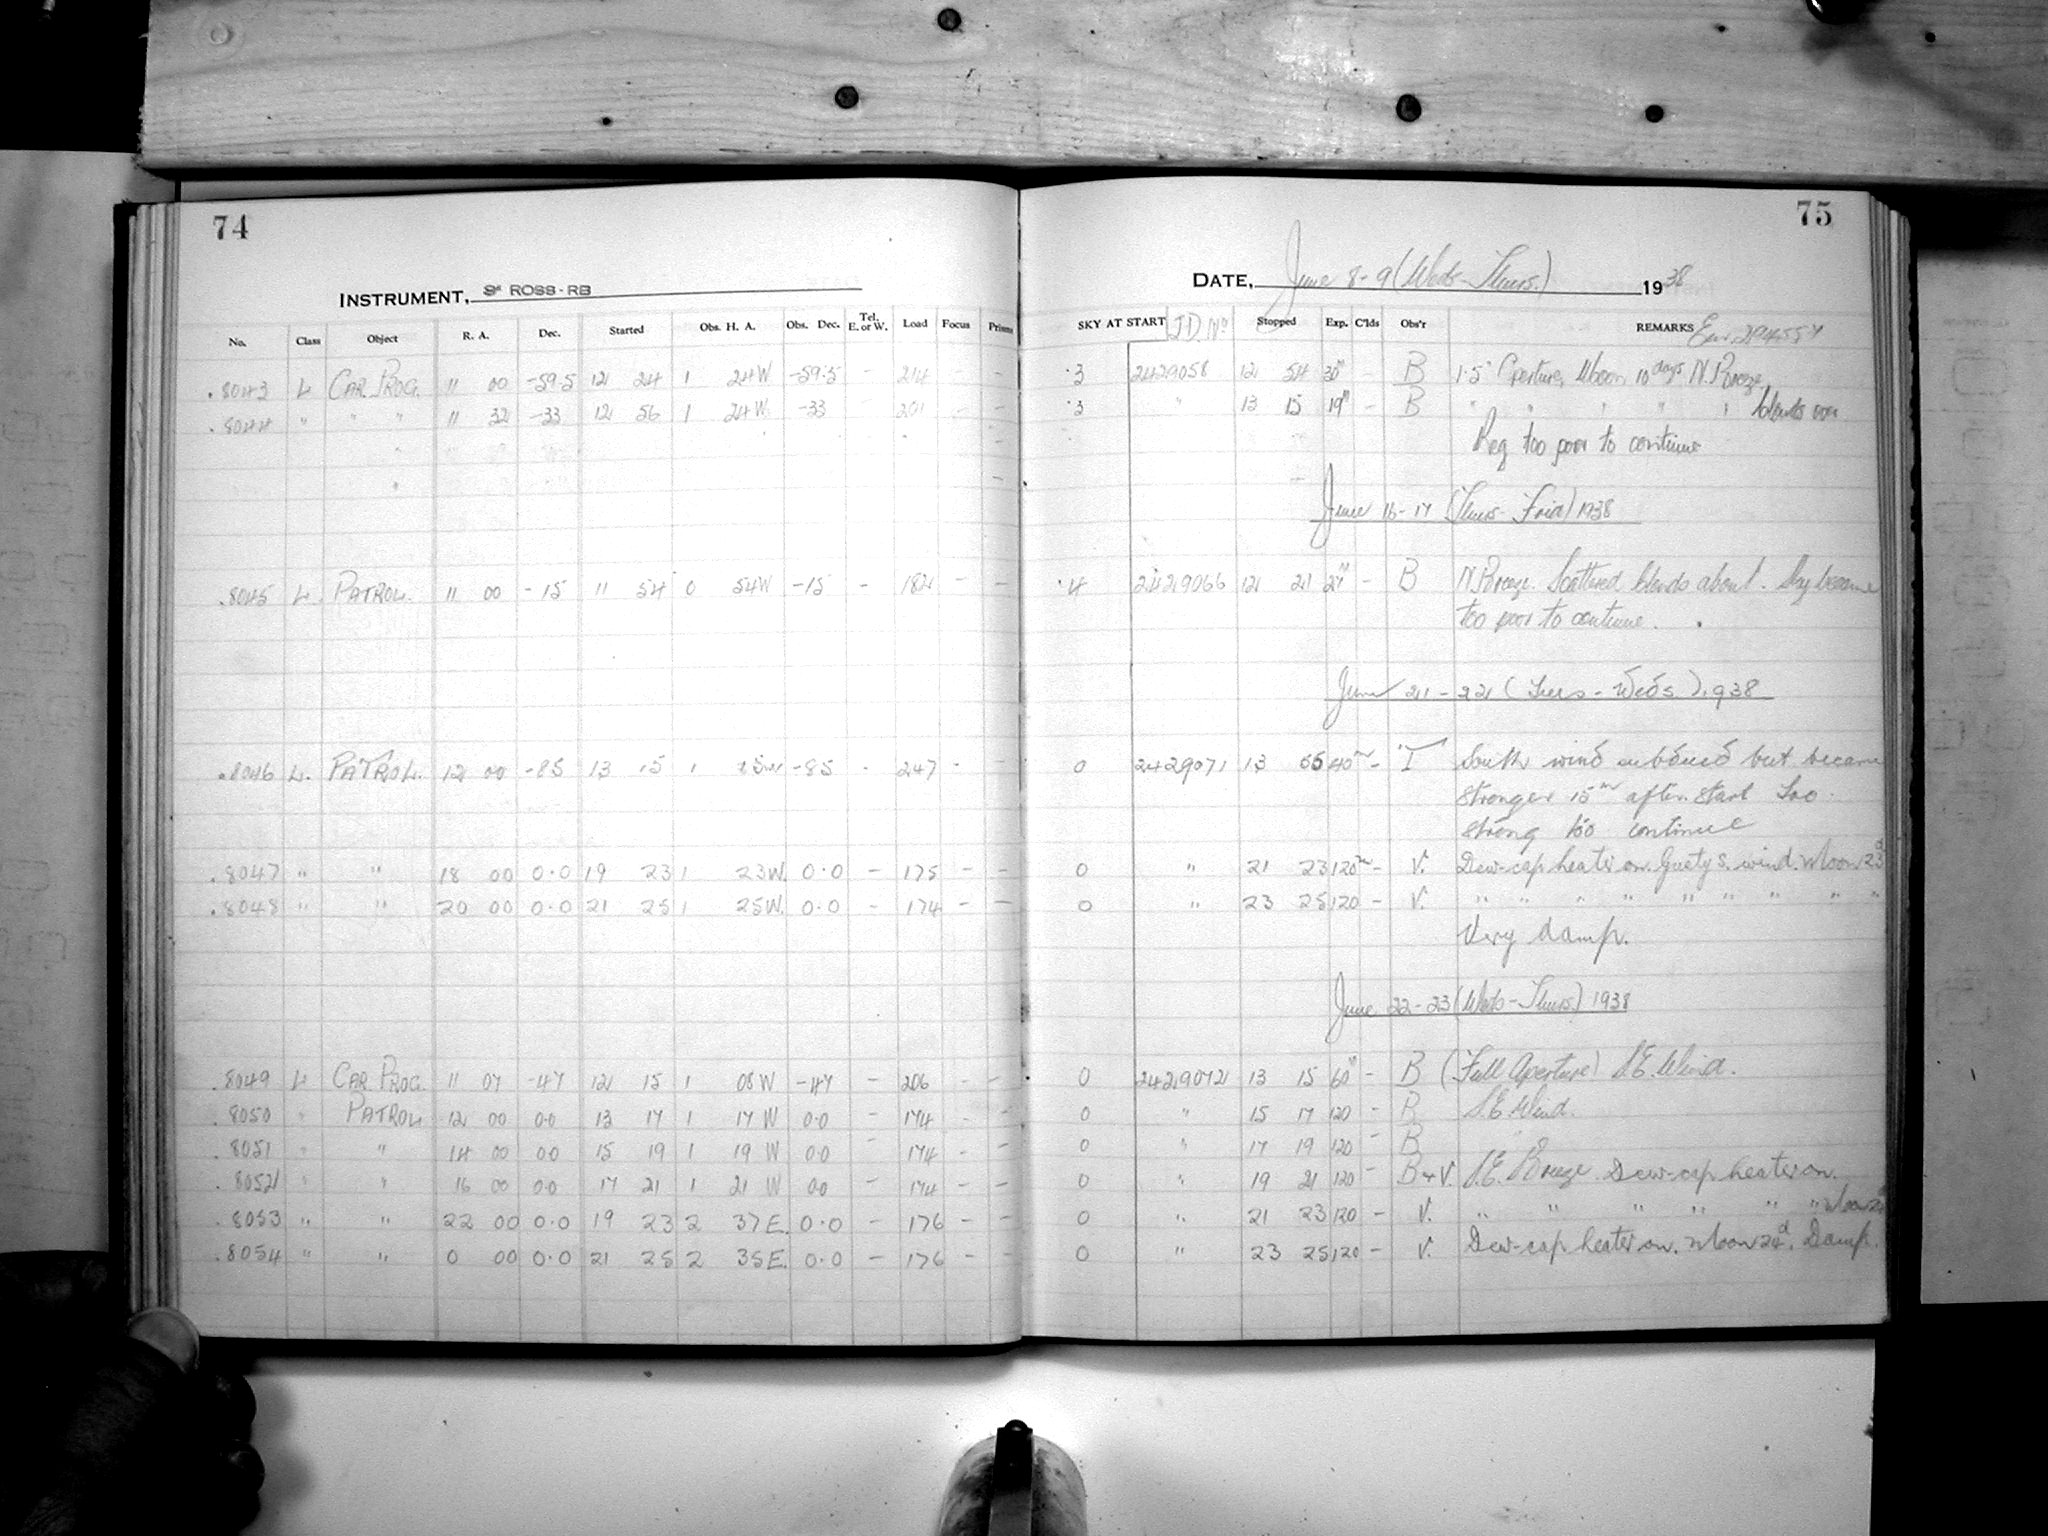 74
INSTRUMENT, 3" ROSS-RB
No. Class Object R. A. Dec. Started Obs. H. A. Obs. Dec. Tel. E. or W. Load Focus Prisms
.8043 L CAR. PROG. 11 00 -59.5 12 24 1 24W -59.5 - 214 - -
.8044 " " " 11 32 -33 12 56 1 24W -33 - 201 - -
.8045 L. PATROL. 11 00 -15 11 54 0 54W -15 - 182 - -
.8046 L. PATROL. 12 00 -85 13 15 1 15W -85 - 247 - -
.8047 " " 18 00 0.0 19 23 1 23W. 0.0 - 175 - -
.8048 " " 20 00 0.0 21 25 1 25W. 0.0 - 174 - -
.8049 L CAR PROG. 11 07 -47 12 15 1 08W -47 - 206 - -
.8050 " PATROL 12 00 0.0 13 17 1 17W 0.0 - 174 - -
.8051 " " 14 00 0.0 15 19 1 19 W 0.0 - 174 - -
.8052 " " 16 00 0.0 17 21 1 21 W 0.0 - 174 - -
.8053 " " 22 00 0.0 19 23 2 37E. 0.0 - 176 - -
.8054 " " 0 00 0.0 21 25 2 35E. 0.0 - 176 - -
75
DATE, June 8-9 (Weds-Thurs.) 1938
SKY AT START J.D. No Stopped Exp. C'lds Obs'r REMARKS
3 2429058 12 54 30m - B 1.5" Aperture, Moon 10 days N. Breeze.
3 " 13 15 19m - B " " " " " Clouds over
Reg too poor to continue
June 16-17 (Thurs-Frid) 1938
4 2429066 12 21 27m - B N. Breeze. Scattered clouds about. Sky became
too poor to continue.
June 21-22 (Tues-Weds) 1938
0 2429071 13 55 40m - T South wind subdued but became
stronger 15m after start Too
strong to continue
0 " 21 23 120m - V. Dew-cap heater on. Gusty S. wind. Moon 23d
0 " 23 25 120 - V. " " " " " " " " "
Very damp.
June 22-23 (Weds-Thurs) 1938
0 2429072 13 15 60m - B (Full Aperture) S.E. Wind.
0 " 15 17 120 - B S.E. Wind.
0 " 17 19 120 - B
0 " 19 21 120 - B & V. S.E. Breeze. Dew-cap heater on.
0 " 21 23 120 - V. " " " " " " Moon
0 " 23 25 120 - V. Dew-cap heater on. Moon 24d. Damp.